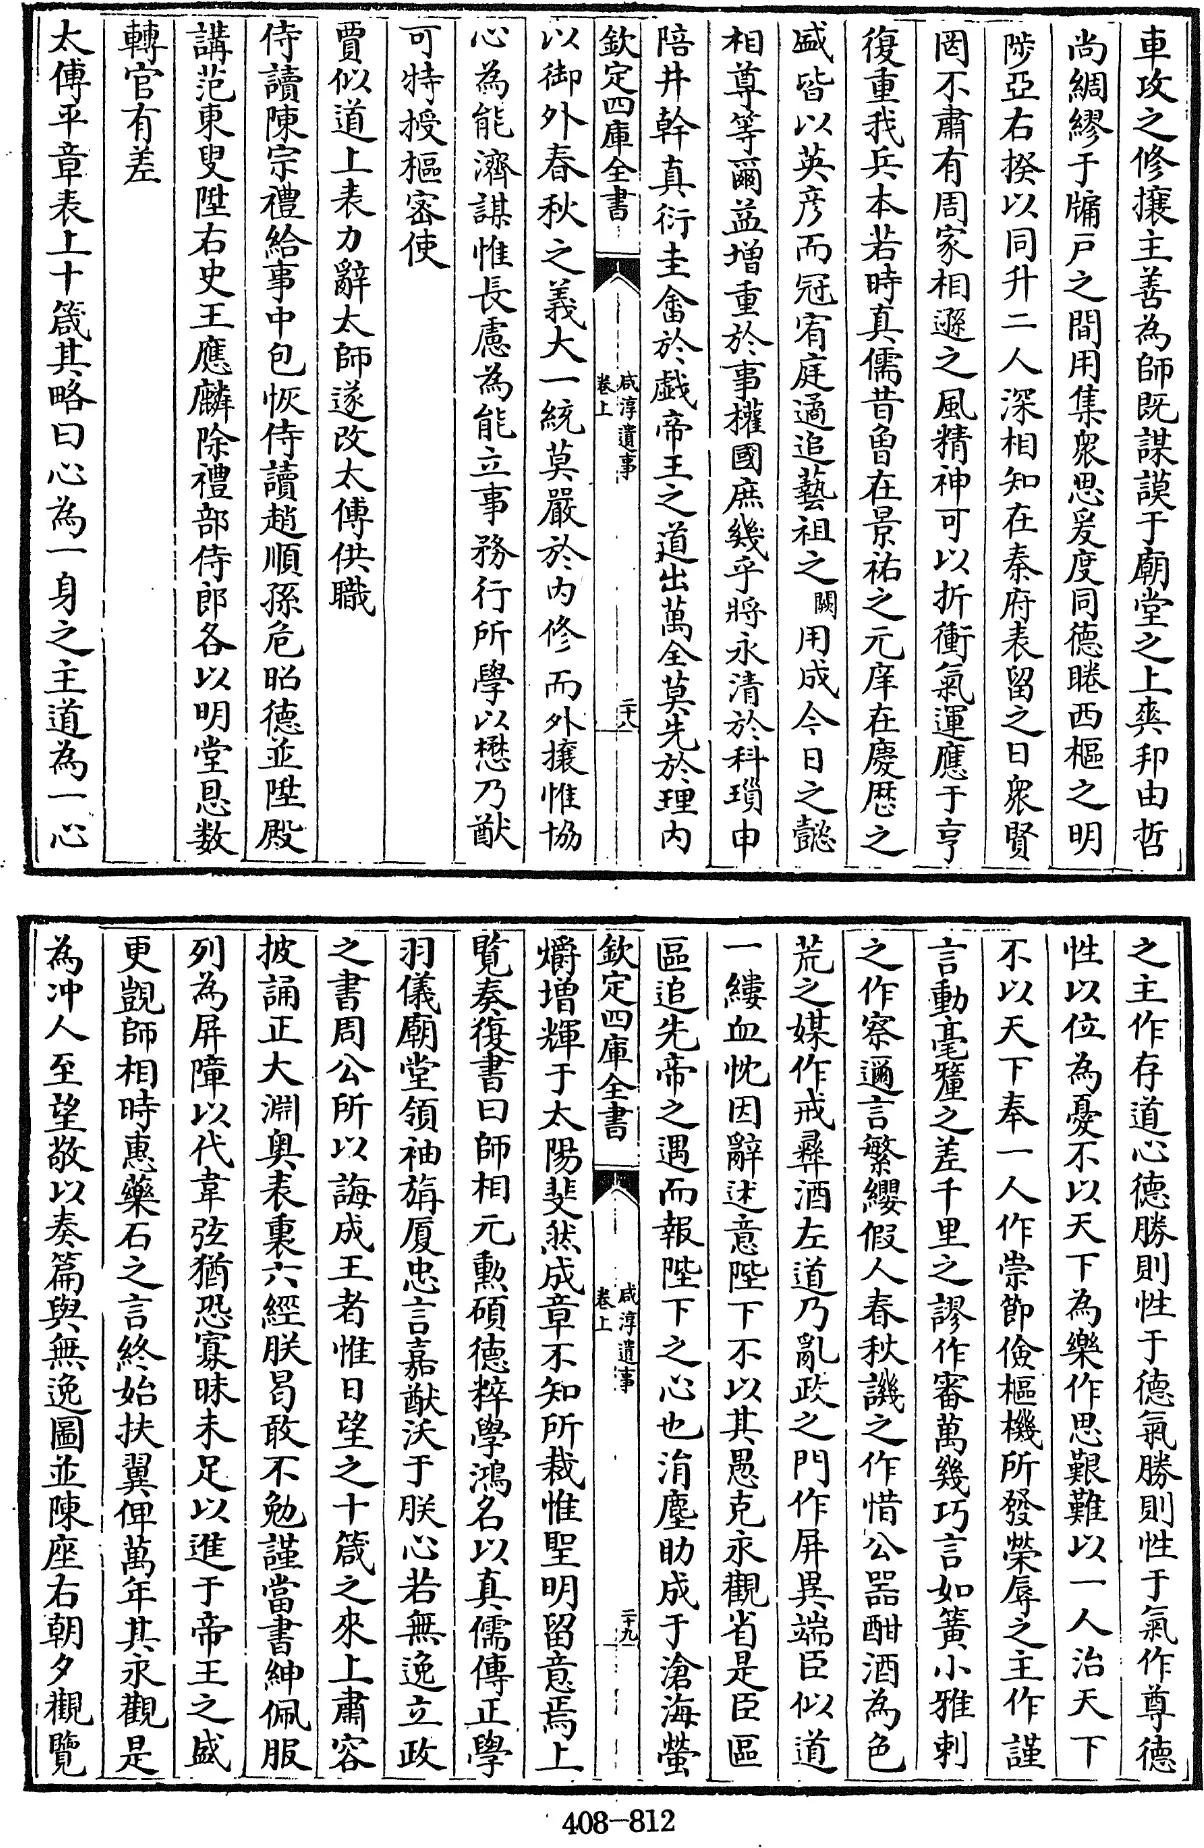 車攻之修攘主善為師既謀謨于廟堂之上爽邦由哲
尚綢繆于牖戸之間用集衆思爰度同德睠西樞之明
陟亞右揆以同升二人深相知在秦府表留之日衆賢
罔不肅有周家相遜之風精神可以折衝氣運應于亨
復重我兵本若時真儒昔魯在景祐之元庠在慶厯之
盛皆以英彥而冠宥庭遹追藝祖之闕用成今日之懿
相尊等爾益增重於事權國庶幾乎將永清於科瑣申
陪井幹真衍圭畬於戲帝王之道出萬全莫先於理内
欽定四庫全書
咸淳遺事
卷上
二十八
以御外春秋之義大一統莫嚴於内修而外攘惟協
心為能濟謀惟長慮為能立事務行所學以懋乃猷
可特授樞密使
賈似道上表力辭太師遂改太傅供職
侍讀陳宗禮給事中包恢侍讀趙順孫危昭德並陞殿
講范東叟陞右史王應麟除禮部侍郎各以明堂恩数
轉官有差
太傅平章表上十箴其略曰心為一身之主道為一心
之主作存道心德勝則性于德氣勝則性于氣作尊德
性以位為憂不以天下為樂作思艱難以一人治天下
不以天下奉一人作崇節儉樞機所發榮辱之主作謹
言動毫釐之差千里之謬作審萬幾巧言如簧小雅刺
之作察邇言繁纓假人春秋譏之作惜公器酣酒為色
荒之媒作戒彝酒左道乃亂政之門作屏異端臣似道
一縷血忱因辭述意陛下不以其愚克永觀省是臣區
區追先帝之遇而報陛下之心也涓塵助成于滄海螢
欽定四庫全書
咸淳遺事
卷上
二十九
爝增輝于太陽斐然成章不知所裁惟聖明留意焉上
覽奏復書曰師相元勲碩德粹學鴻名以真儒傳正學
羽儀廟堂領袖旃厦忠言嘉猷沃于朕心若無逸立政
之書周公所以誨成王者惟日望之十箴之來上肅容
披誦正大淵奥表裏六經朕曷敢不勉謹當書紳佩服
列為屏障以代韋弦猶恐寡昧未足以進于帝王之盛
更覬師相時惠藥石之言終始扶翼俾萬年其永觀是
為冲人至望敬以奏篇與無逸圖並陳座右朝夕觀覽
408-812